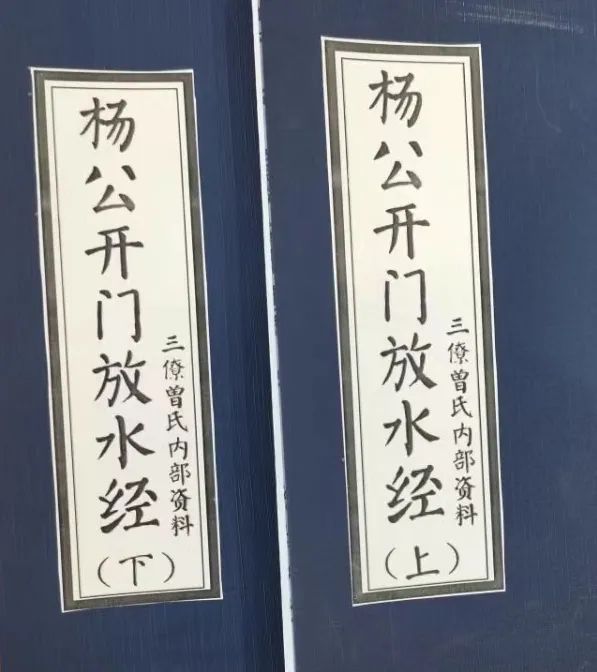 杨公开门放水经
三僚曾氏内部资料
（下）
杨公开门放水经
三僚曾氏内部资料
（上）